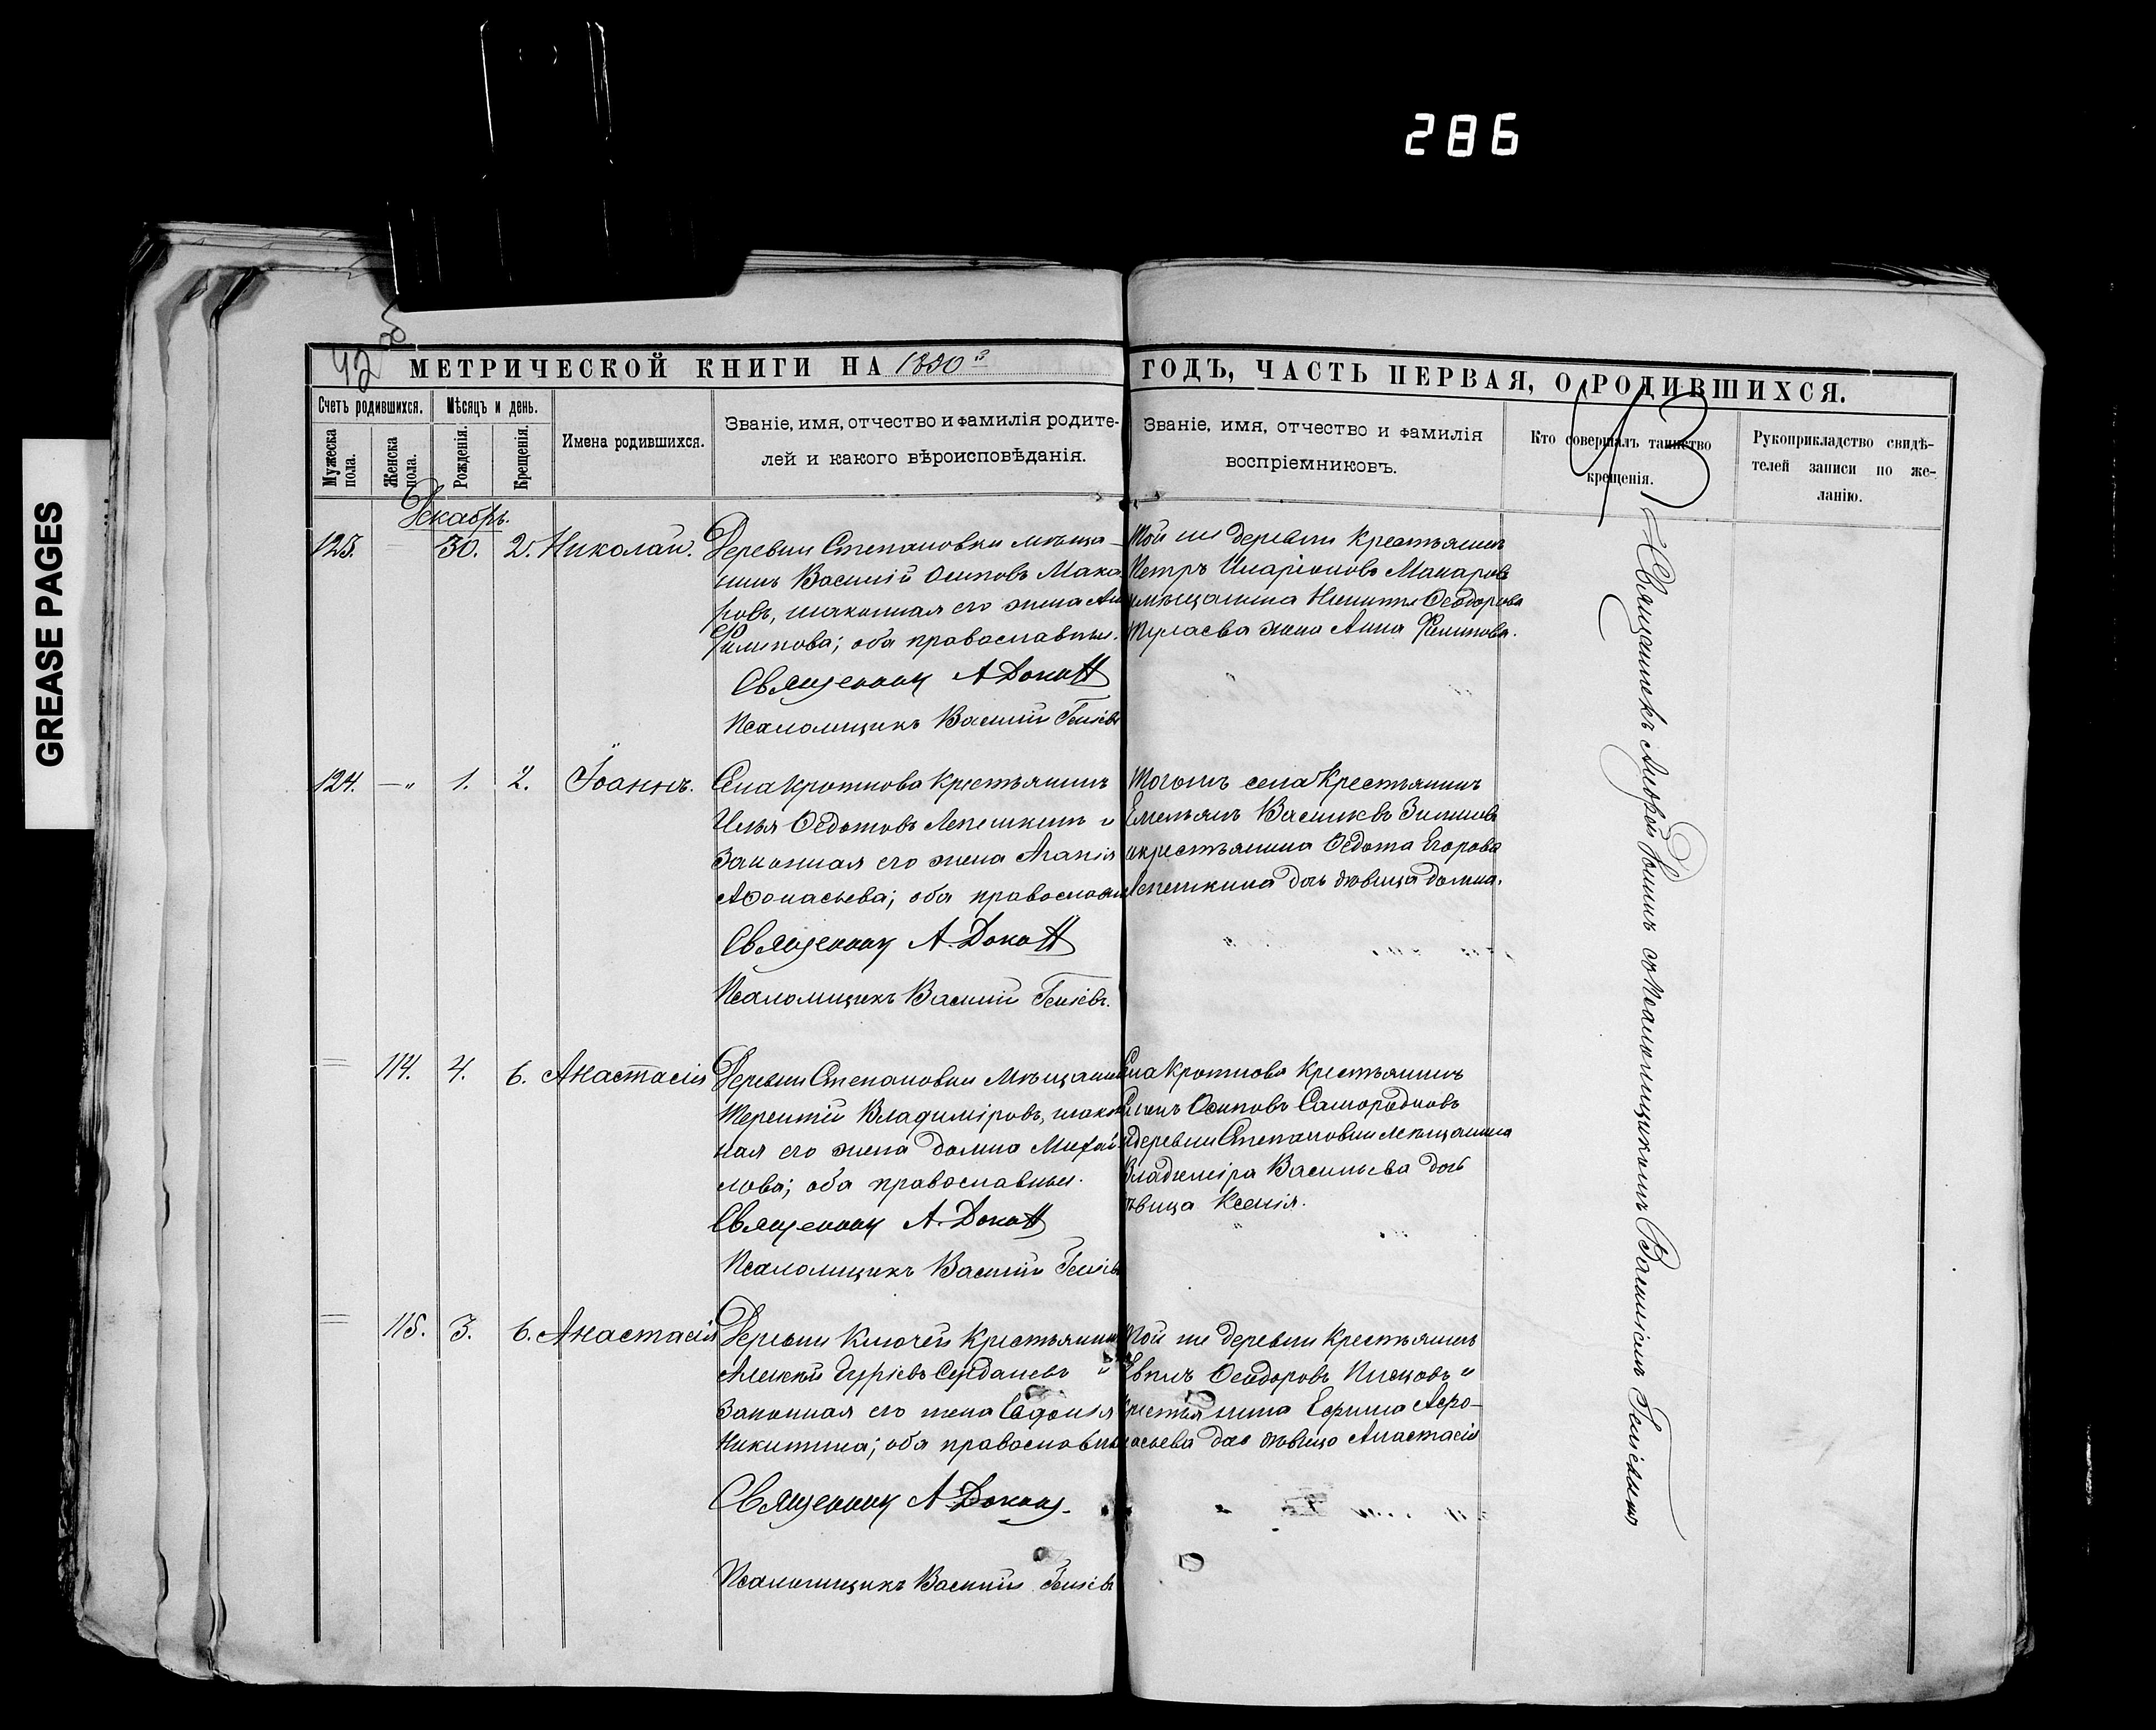 286
GREASE PAGES
42 об
МЕТРИЧЕСКОЙ КНИГИ НА 1890й
ГОДЪ, ЧАСТЬ ПЕРВАЯ, О РОДИВШИХСЯ.
Счетъ родившихся.
Мужеска пола.
Женска пола.
Мѣсяцъ и день.
Рожденія.
Крещенія.
Имена родившихся.
Званіе, имя, отчество и фамилія родите-
лей и какого вѣроисповѣданія.
Званіе, имя, отчество и фамилія
воспріемниковъ.
Кто совершалъ таинство
крещенія.
Рукоприкладство свидѣ-
телей записи по же-
ланію.
Декабрь.
123. 30. 2. Николай.
Деревни Степановки мѣща-
нинъ Василій Осиповъ Мака
ровъ, законная его жена Ан
Филипова; оба православные.
Священник А Дока
Псаломщикъ Василій
Той же деревни крестьянинъ
Петръ Иларіоновъ Макаровъ
и мѣщанина Никиты Ѳеодорова
жена Анна Филипова.
124. 1. 2. Іоаннъ.
Села Кроткова Крестьянинъ
Илья Ѳедотовъ Лепешкинъ и
Законная его жена Агапія
Аѳонасьева; оба православн
Священник А. Дока
Псаломщикъ Василій
Тогожъ села Крестьянинъ
Емельянъ Васильевъ
и крестьянина Ѳедота Егорова
Лепешкина дочь дѣвица Домна.
114. 4. 6. Анастасія
Деревни Степановки Мѣщанин
Терентій Владиміровъ, закон
ная его жена Домна Михай
лова; оба православные.
Священник А. Дока
Псаломщикъ Василій
Села Кроткова Крестьянинъ
Осиповъ Самородковъ
и деревни Степановки мѣщанина
Владиміра Васильева дочь
ѣвица Ксенія.
115. 3. 6. Анастасія
Деревни Ключей Крестьянин
Алексѣй Гурьевъ и
Законная его жена Евдокія
Никитина; оба православны
Священник А Дока
Псаломщикъ Василій
Той же деревни Крестьянинъ
Ѳеодоровъ и
крестьянина Ефима Афо-
насьева дочь дѣвица Анастасія
Священникъ Андрей съ Псаломщикомъ Василіемъ